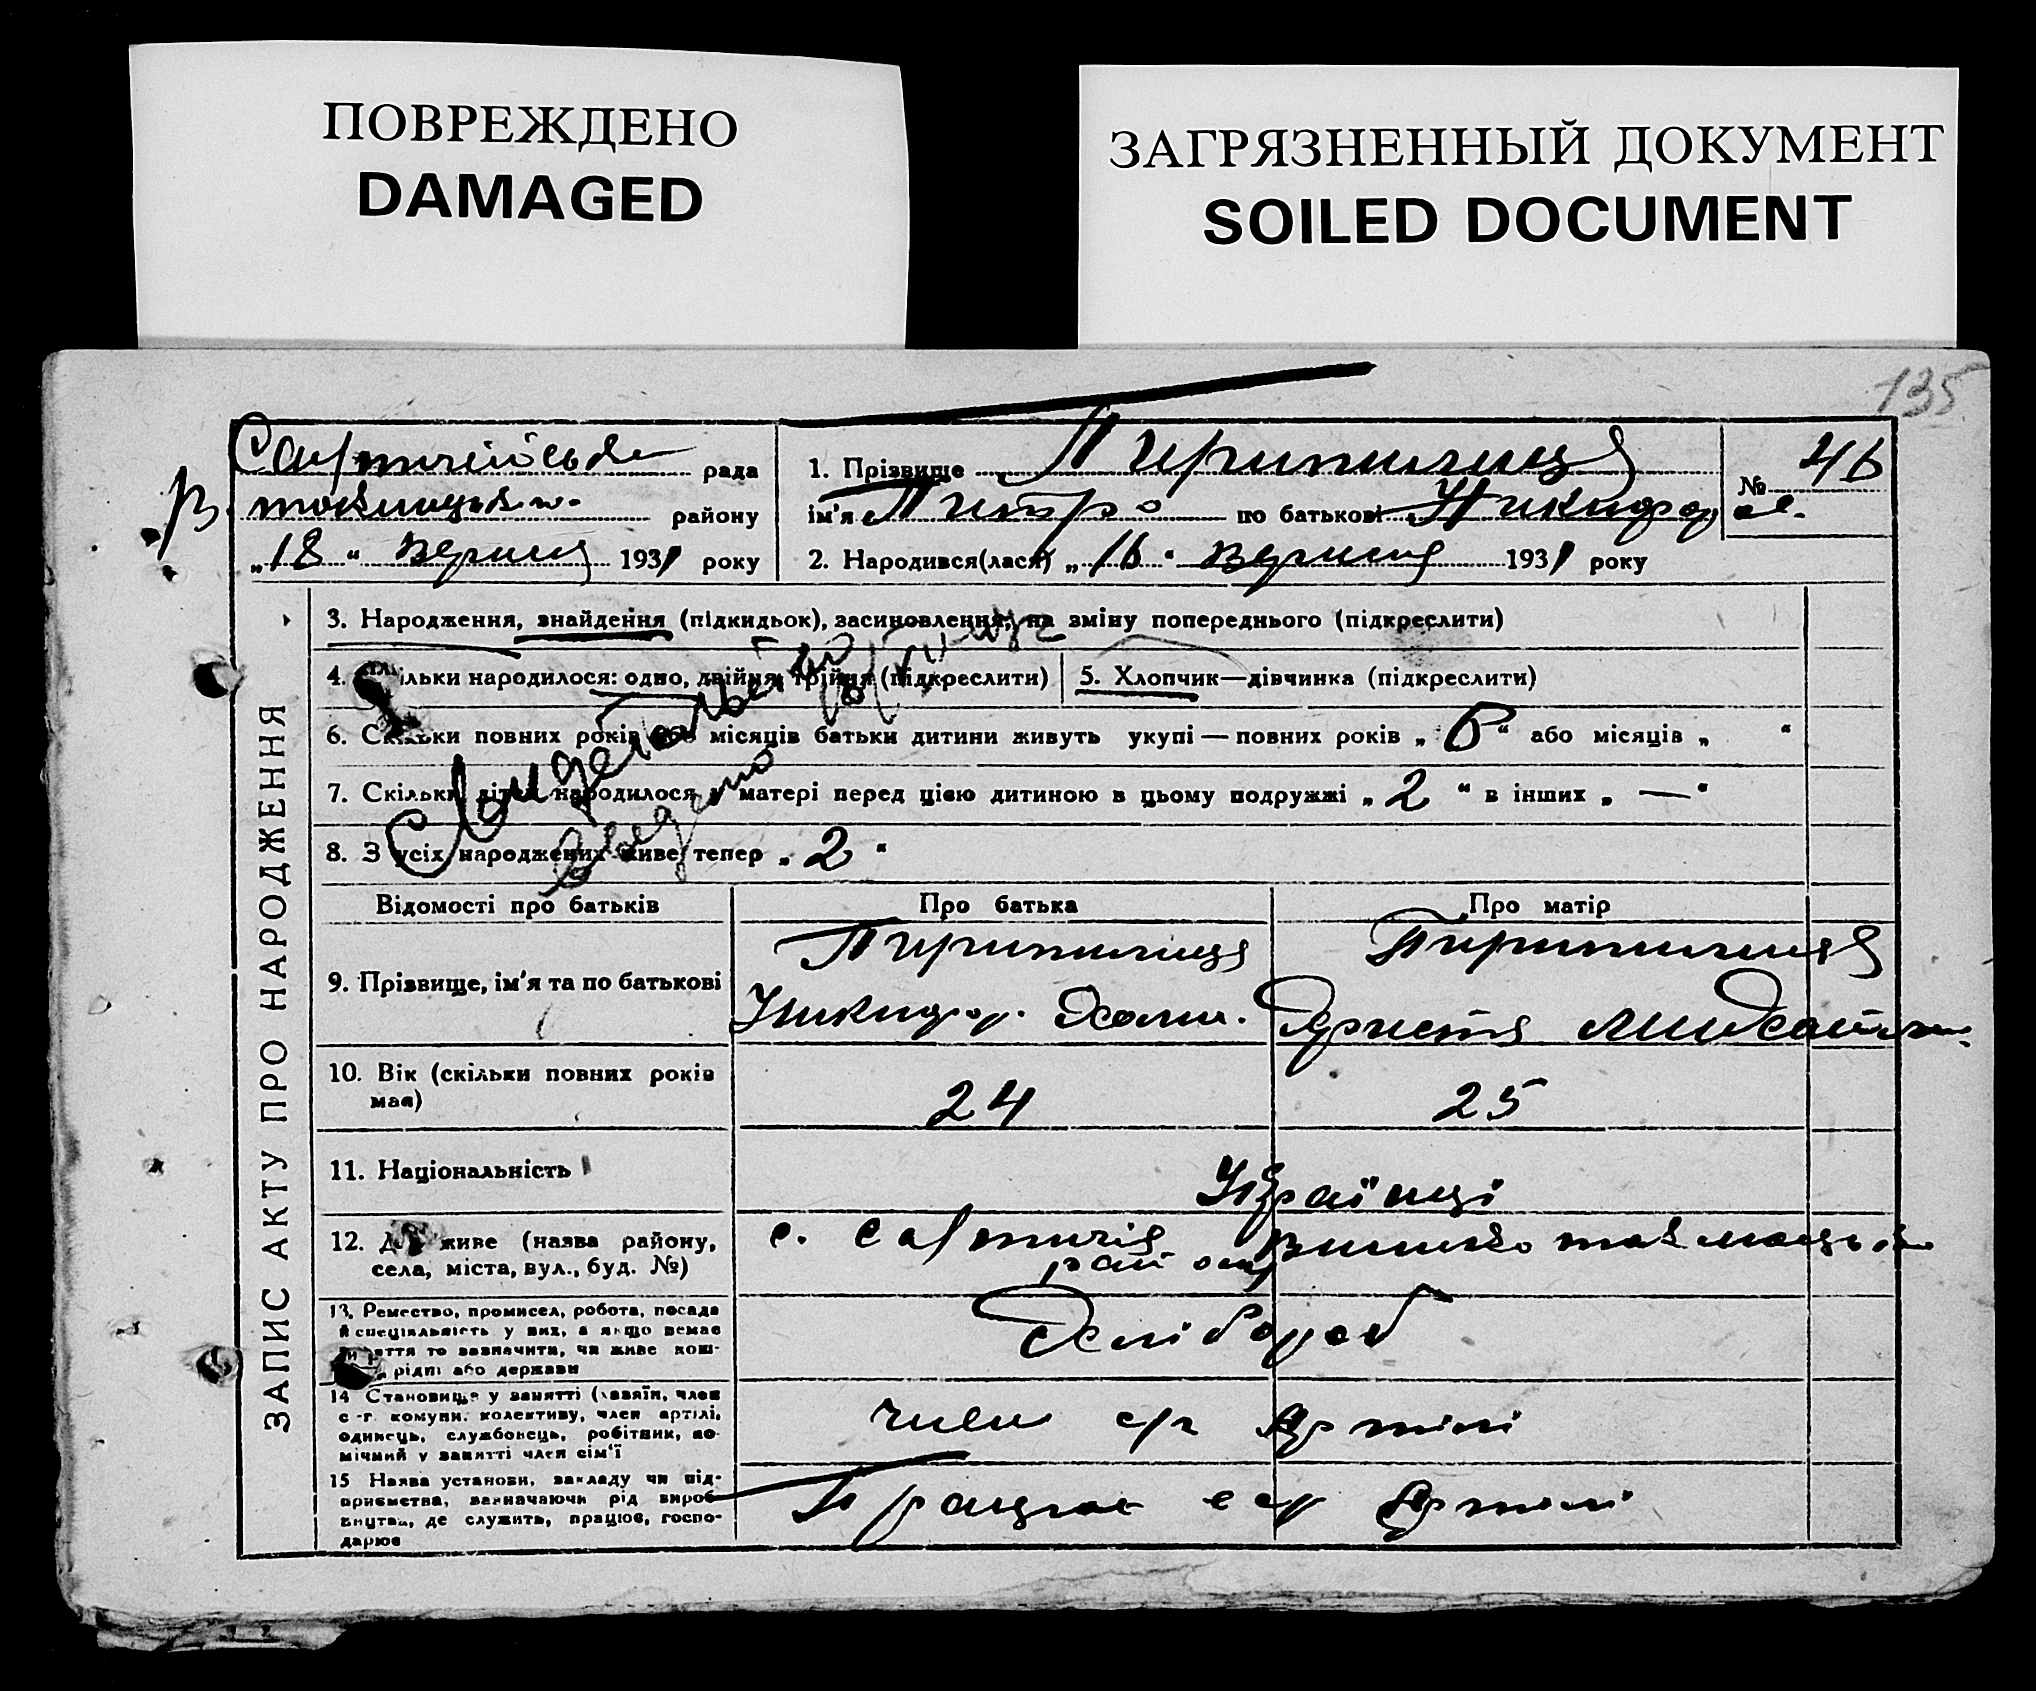 ПОВРЕЖДЕНО
DAMAGED
ЗАГРЯЗНЕННЫЙ ДОКУМЕНТ
SOILED DOCUMENT
135
рада
району
„18“ вересня 1931 року
1. Прізвище Перепилиця
ім'я Петро по батькові Никифор
2. Народився(лася) „16“ вересня 1931 року
№ 46
ЗАПИС АКТУ ПРО НАРОДЖЕННЯ
3. Народження, знайдення (підкидьок), засиновлення, на зміну попереднього (підкреслити)
4. Скільки народилося: одно, двійня, трійня (підкреслити)
5. Хлопчик—дівчинка (підкреслити)
6. Скільки повних років або місяців батьки дитини живуть укупі — повних років „6“ або місяців „ “
7. Скільки дітей народилося у матері перед цією дитиною в цьому подружжі „2“ в інших „—“
8. З усіх народжених живе тепер „2“
Свидетельство
выдано
Відомості про батьків
Про батька
Про матір
9. Прізвище, ім'я та по батькові
Перепилиця
Перепилиця
Никифор
10. Вік (скільки повних років має)
24
25
11. Національність
Українці
12. Де живе (назва району,
села, міста, вул., буд. №)
с.
13. Ремество, промисел, робота, посада
й спеціяльність у них, а якщо немає
заняття то зазначити, чи живе кош-
рідні або держави
Хлібороб
14 Становище у занятті (хазяїн, член
с.-г. комуни, колективу, член артілі,
одинець, службовець, робітник, по-
мічний у занятті член сім'ї
член с/г Артілі
15 Назва установи, закладу чи під-
приємства, зазначаючи рід вироб-
ництва, де служить, працює, госпо-
дарює
Працює в с/г Артілі